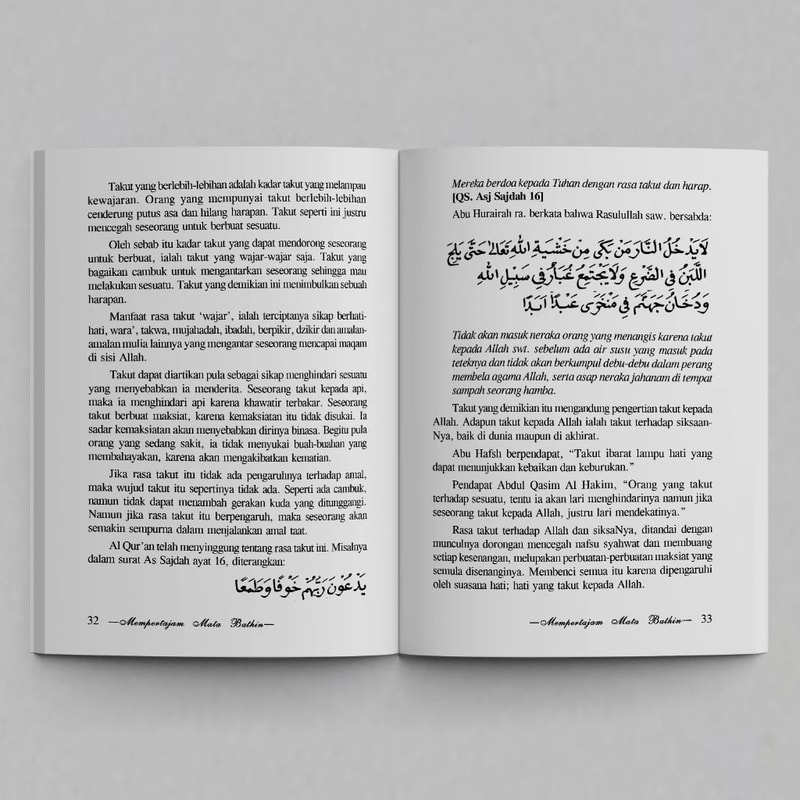 Takut yang berlebih-lebihan adalah kadar takut yang melampau
kewajaran. Orang yang mempunyai takut berlebih-lebihan
cenderung putus asa dan hilang harapan. Takut seperti ini justru
mencegah seseorang untuk berbuat sesuatu.
Oleh sebab itu kadar takut yang dapat mendorong seseorang
untuk berbuat, ialah takut yang wajar-wajar saja. Takut yang
bagaikan cambuk untuk mengantarkan seseorang sehingga mau
melakukan sesuatu. Takut yang demikian ini menimbulkan sebuah
harapan.
Manfaat rasa takut ‘wajar’, ialah terciptanya sikap berhati-
hati, wara’, takwa, mujahadah, ibadah, berpikir, dzikir dan amalan-
amalan mulia lainnya yang mengantar seseorang mencapai maqam
di sisi Allah.
Takut dapat diartikan pula sebagai sikap menghindari sesuatu
yang menyebabkan ia menderita. Seseorang takut kepada api,
maka ia menghindari api karena khawatir terbakar. Seseorang
takut berbuat maksiat, karena kemaksiatan itu tidak disukai. Ia
sadar kemaksiatan akan menyebabkan dirinya binasa. Begitu pula
orang yang sedang sakit, ia tidak menyukai buah-buahan yang
membahayakan, karena akan mengakibatkan kematian.
Jika rasa takut itu tidak ada pengaruhnya terhadap amal,
maka wujud takut itu sepertinya tidak ada. Seperti ada cambuk,
namun tidak dapat menambah gerakan kuda yang ditunggangi.
Namun jika rasa takut itu berpengaruh, maka seseorang akan
semakin sempurna dalam menjalankan amal taat.
Al Qur’an telah menyinggung tentang rasa takut ini. Misalnya
dalam surat As Sajdah ayat 16, diterangkan:
يَدْعُوْنَ رَبَّهُمْ خَوْفًا وَطَمَعًا
32 —Mempertajam Mata Bathin—
Mereka berdoa kepada Tuhan dengan rasa takut dan harap.
[QS. Asj Sajdah 16]
Abu Hurairah ra. berkata bahwa Rasulullah saw. bersabda:
لَا يَدْخُلُ النَّارَ مَنْ بَكَى مِنْ خَشْيَةِ اللهِ تَعَالَى حَتَّى يَلِجَ
اللَّبَنُ فِي الضَّرْعِ وَلَا يَجْتَمِعُ غُبَارٌ فِي سَبِيْلِ اللهِ
وَدُخَانُ جَهَنَّمَ فِي مَنْخَرَيْ عَبْدٍ أَبَدًا
Tidak akan masuk neraka orang yang menangis karena takut
kepada Allah swt. sebelum ada air susu yang masuk pada
teteknya dan tidak akan berkumpul debu-debu dalam perang
membela agama Allah, serta asap neraka jahanam di tempat
sampah seorang hamba.
Takut yang demikian itu mengandung pengertian takut kepada
Allah. Adapun takut kepada Allah ialah takut terhadap siksaan-
Nya, baik di dunia maupun di akhirat.
Abu Hafsh berpendapat, “Takut ibarat lampu hati yang
dapat menunjukkan kebaikan dan keburukan.”
Pendapat Abdul Qasim Al Hakim, “Orang yang takut
terhadap sesuatu, tentu ia akan lari menghindarinya namun jika
seseorang takut kepada Allah, justru lari mendekatinya.”
Rasa takut terhadap Allah dan siksaNya, ditandai dengan
munculnya dorongan mencegah nafsu syahwat dan membuang
setiap kesenangan, melupakan perbuatan-perbuatan maksiat yang
semula disenanginya. Membenci semua itu karena dipengaruhi
oleh suasana hati; hati yang takut kepada Allah.
—Mempertajam Mata Bathin— 33